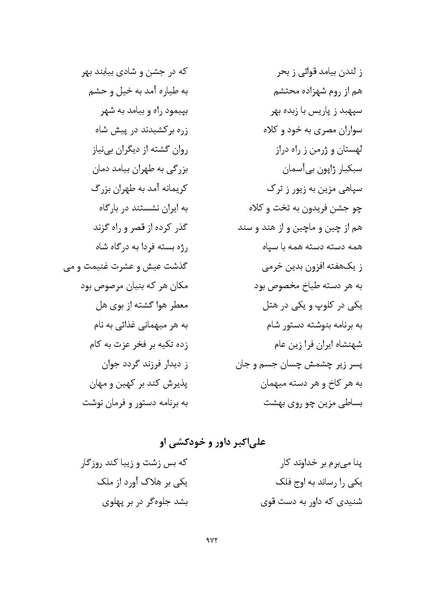 ز لندن بیامد قوائی ز بحر که در جشن و شادی بیابند بهر
هم از روم شهزاده محتشم به طیاره آمد به خیل و حشم
سپهبد ز پاریس با زبده بهر بپیمود راه و بیامد به شهر
سواران مصری به خود و کلاه زره برکشیدند در پیش شاه
لهستان و ژرمن ز راه دراز روان گشته از دیگران بی‌نیاز
سبکبار ژاپون بی‌آسمان بزرگی به طهران بیامد دمان
سپاهی مزین به زیور ز ترک کریمانه آمد به طهران بزرگ
چو جشن فریدون به تخت و کلاه به ایران نشستند در بارگاه
هم از چین و ماچین و از هند و سند گذر کرده از قصر و راه گزند
همه دسته دسته همه با سپاه رژه بسته فردا به درگاه شاه
ز یک‌هفته افزون بدین خرمی گذشت عیش و عشرت غنیمت و می
به هر دسته طباخ مخصوص بود مکان هر که بنیان مرصوص بود
یکی در کلوپ و یکی در هتل معطر هوا گشته از بوی هل
به برنامه بنوشته دستور شام به هر میهمانی غذائی به نام
شهنشاه ایران فرا زین عام زده تکیه بر فخر عزت به کام
پسر زیر چشمش چسان جسم و جان ز دیدار فرزند گردد جوان
به هر کاخ و هر دسته میهمان پذیرش کند بر کهین و مهان
بساطی مزین چو روی بهشت به برنامه دستور و فرمان نوشت
علی‌اکبر داور و خودکشی او
پنا می‌برم بر خداوند کار که بس زشت و زیبا کند روزگار
یکی را رساند به اوج فلک یکی بر هلاک آورد از ملک
شنیدی که داور به دست قوی بشد جلوه‌گر در بر پهلوی
۹۷۲